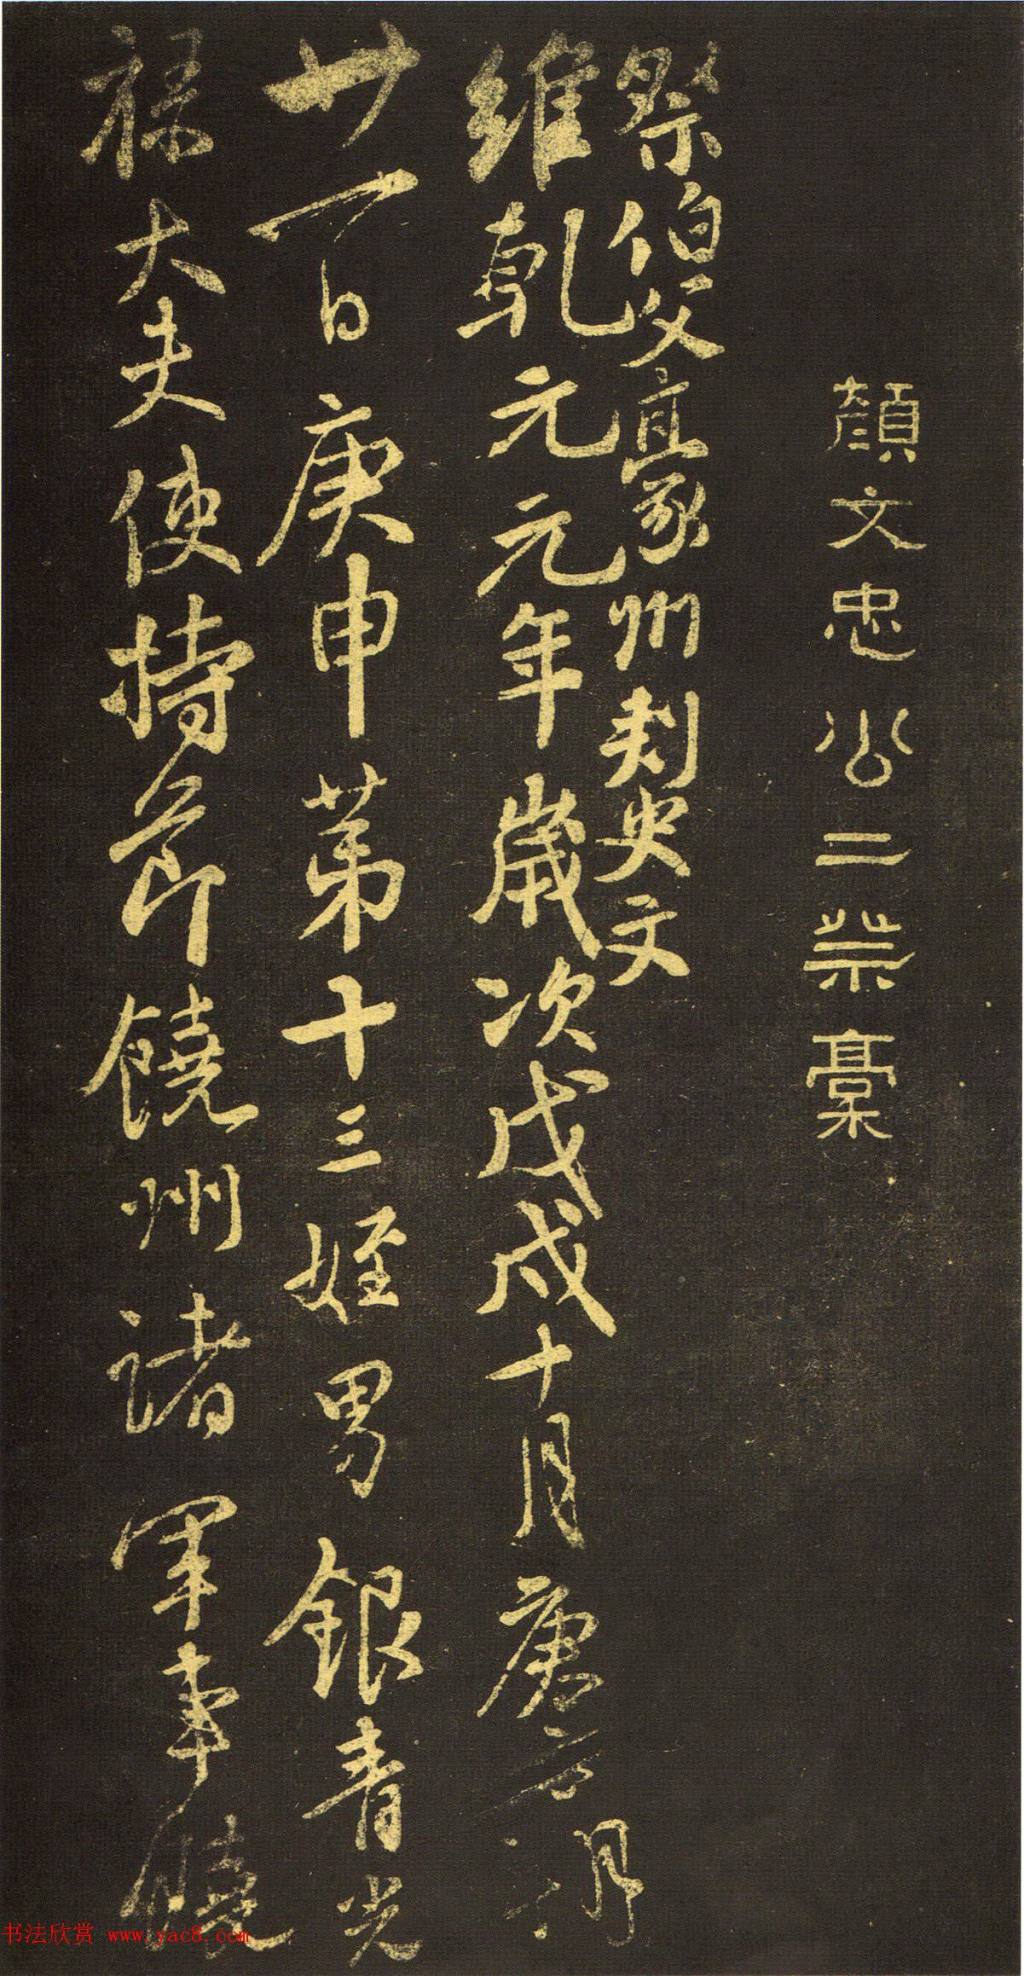 顏文忠公二祭稾
祭伯父豪州刾史文
維乾元元年歲次戊戌十月庚寅朔
廿一日庚申第十三姪男銀青光
祿大夫使持節饒州諸軍事饒
书法欣赏 www.yac8.com